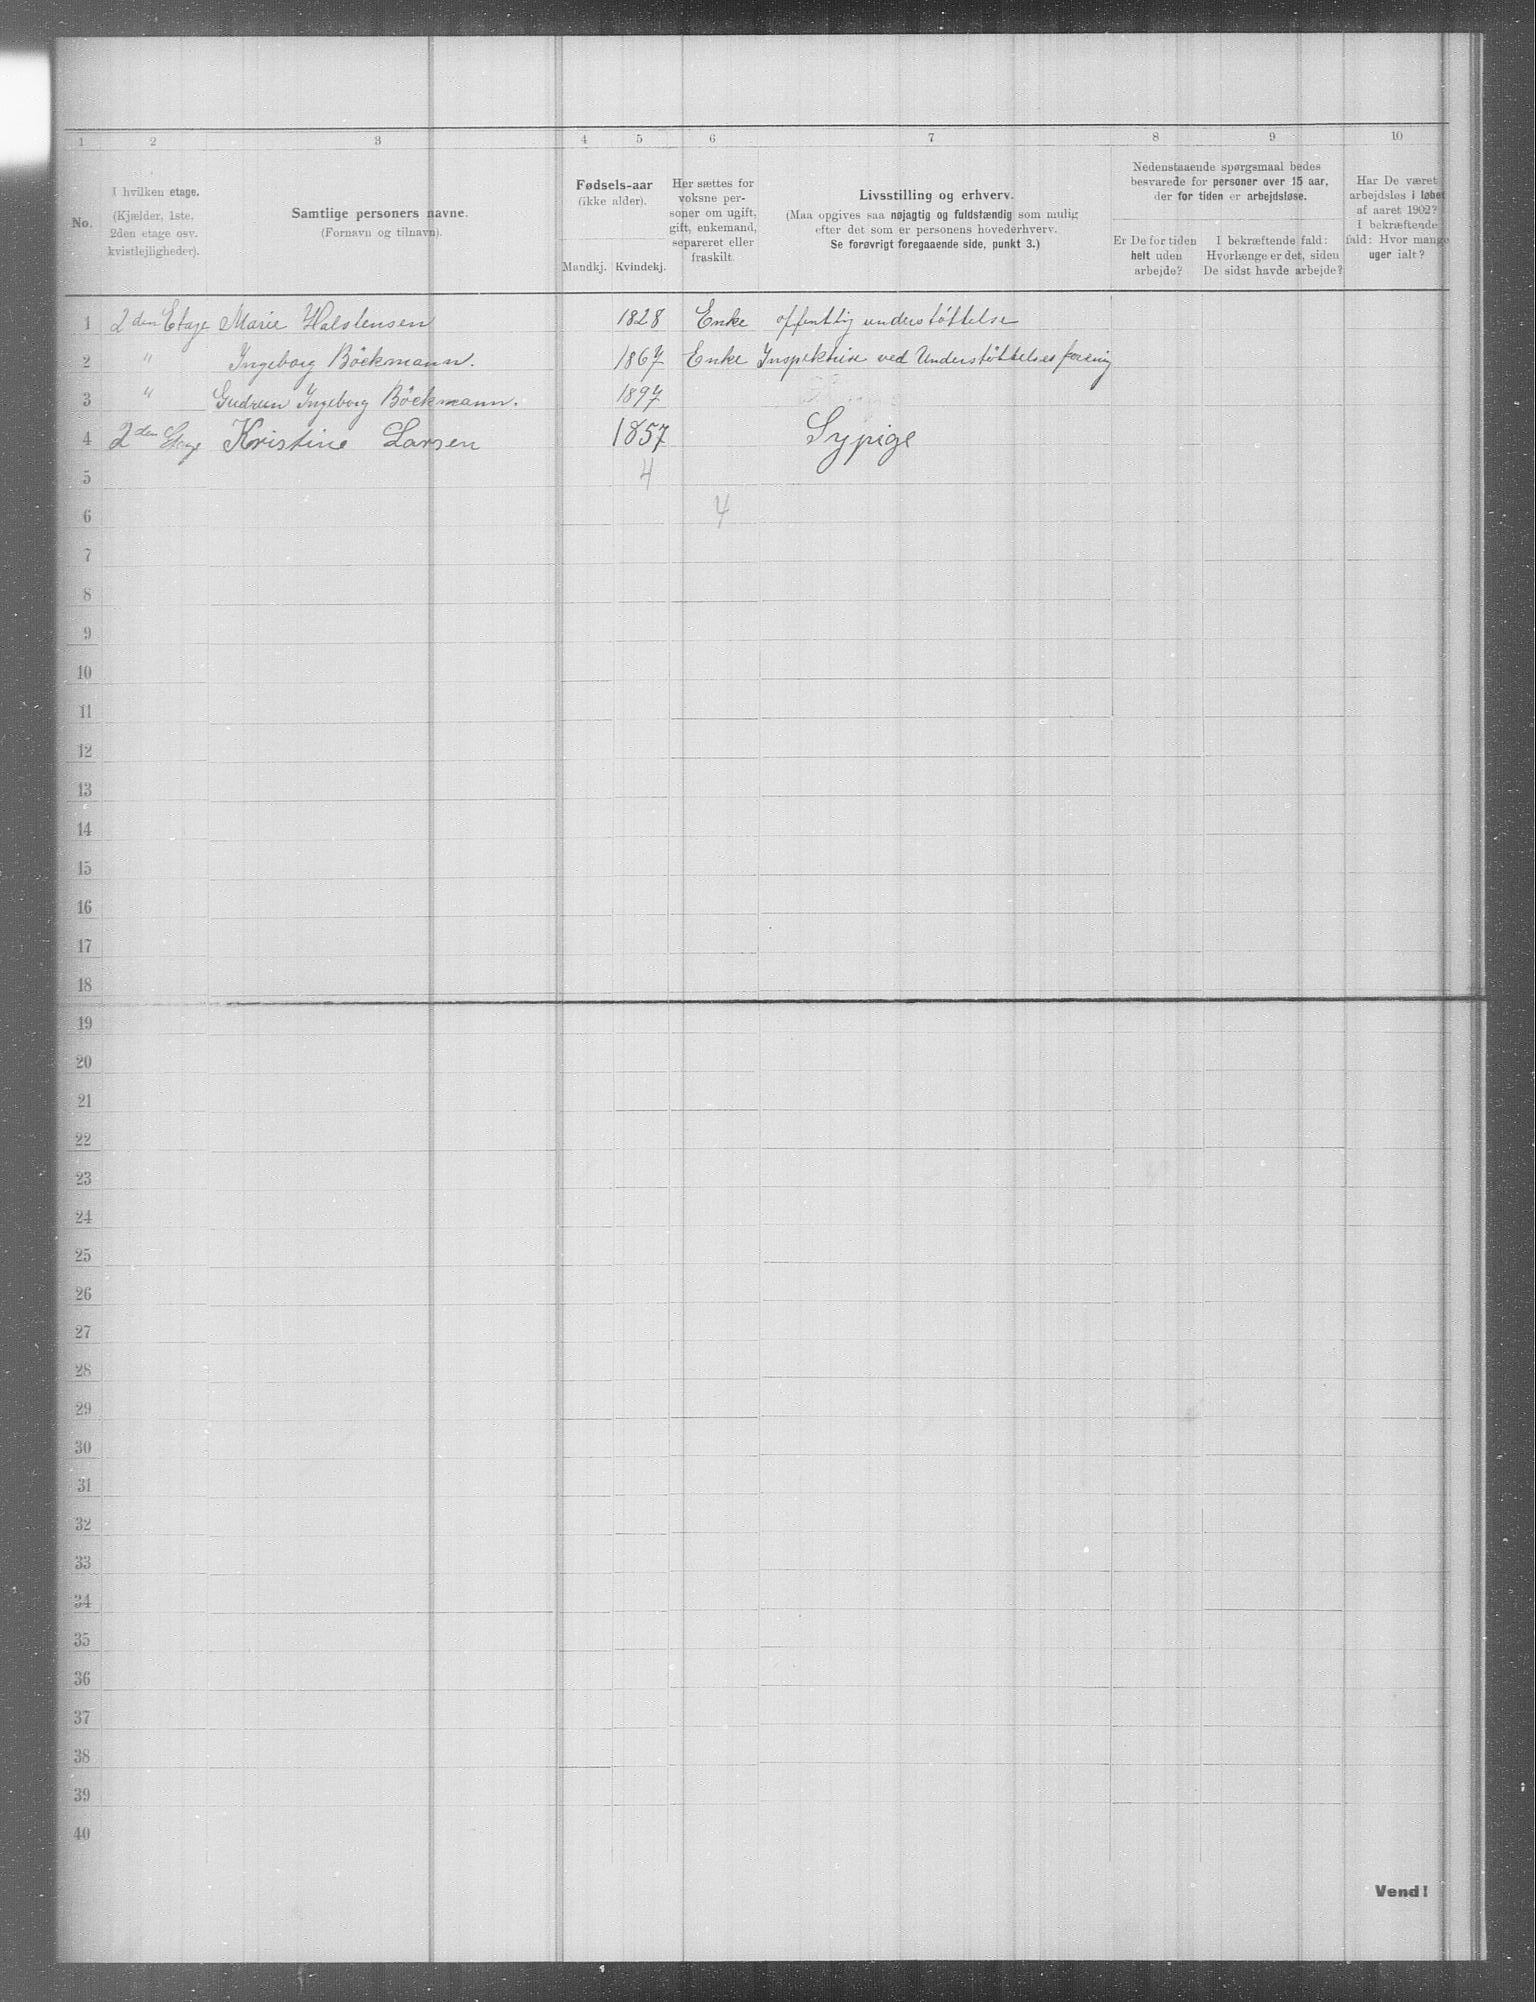 1 2 3 4 5 6 7 8 9 10
No.
I hvilken etage.
(Kjælder, 1ste,
2den etage osv.
kvistlejligheder).
Samtlige personers navne.
(Fornavn og tilnavn).
Fødsels-aar
(ikke alder).
Mandkj. Kvindekj.
Her sættes for
voksne per-
soner om ugift,
gift, enkemand,
separeret eller
fraskilt.
Livsstilling og erhverv.
(Maa opgives saa nøjagtig og fuldstændig som mulig
efter det som er personens hovederhverv.
Se forøvrigt foregaaende side, punkt 3.)
Nedenstaaende spørgsmaal bedes
besvarede for personer over 15 aar,
der for tiden er arbejdsløse.
Er De for tiden
helt uden
arbejde?
I bekræftende fald:
Hvorlænge er det, siden
De sidst havde arbejde?
Har De været
arbejdsløs i løbet
af aaret 1902?
I bekræftende
fald: Hvor mange
uger ialt?
1 2den Etage Marie Halstensen 1828 Enke offentlig understöttelse
2 " Ingeborg Böckmann. 1867 Enke Inspektrise ved Understöttelsesforening
3 " Gudrun Ingeborg Böckmann. 1897
4 2den Etage Kristine Larsen 1857 Sypige
5 4
6 4
7
8
9
10
11
12
13
14
15
16
17
18
19
20
21
22
23
24
25
26
27
28
29
30
31
32
33
34
35
36
37
38
39
40
Vend!